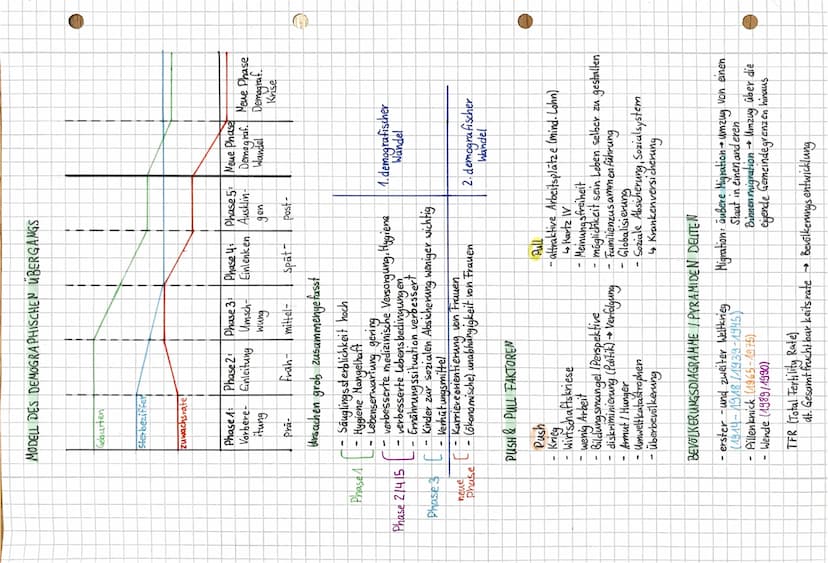 MODELL DES DEMOGRAPHISCHEN ÜBERGANGS
Geburten
Sterbeziffer
Zuwachsrate
Phase 1: Vorbereitung
Phase 2: Einleitung
Phase 3: Umschwung
Phase 4: Einlenken
Phase 5: Ausklingen
Neue Phase Demograf. Wandel
Neue Phase Demograf. Krise
Prä-
Früh-
mittel-
Spät-
post-
Ursachen grob zusammengefasst
Phase 1
- Säuglingssterblichkeit hoch
- Hygiene Mangelhaft
- Lebenserwartung gering
Phase 2/4/5
- verbesserte medizinische Versorgung, Hygiene
- verbesserte Lebensbedingungen
- Ernährungssituation verbessert
1. demografischer Wandel
Phase 3
- Kinder zur sozialen Absicherung weniger wichtig
- Verhütungsmittel
neue Phase
- Karriereorientierung von Frauen
- (Ökonomische) unabhängigkeit von Frauen
2. demografischer Wandel
PUSH & PULL FAKTOREN
Push
- Krieg
- Wirtschaftskriese
- wenig Arbeit
- Bildungsmangel/Perspektive
- diskriminierung (Politik) → Verfolgung
- Armut/Hunger
- Umweltkatastrophen
- Überbevölkerung
Pull
- attraktive Arbeitsplätze (mind. Lohn)
↳ hartz IV
- Meinungsfreiheit
- möglichkeit sein Leben selber zu gestalten
- Familienzusammenführung
- Globalisierung
- Soziale Absicherung, Sozialsystem
↳ Krankenversicherung
BEVÖLKERUNGSDIAGRAMME/PYRAMIDEN DEUTEN
- erster- und zweiter Weltkrieg
(1914-1918/1939-1945)
- Pillenknick (1965-1975)
- Wende (1989/1990)
Migration: äußere Migration → umzug von einen
Staat in einen anderen
Binnenmigration → Umzug über die
eigende Gemeindegrenzen hinaus
TFR (Total Fertility Rate)
dt. Gesamtfruchtbarkeitsrate → Bevölkerungsentwicklung